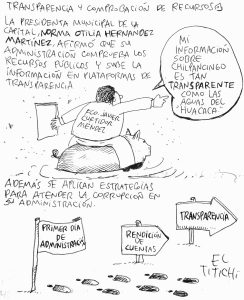 TRANSPARENCIA Y COMPROBACIÓN DE RECURSOS
LA PRESIDENTA MUNICIPAL DE LA
CAPITAL, NORMA OTILIA HERNANDEZ
MARTÍNEZ, AFIRMÓ QUE SU
ADMINISTRACIÓN COMPRUEBA LOS
RECURSOS PÚBLICOS Y SUBE LA
INFORMACIÓN EN PLATAFORMAS DE
TRANSPARENCIA
MI
INFORMACIÓN
SOBRE
CHILPANCINGO
ES TAN
TRANSPARENTE
COMO LAS
AGUAS DEL
HUACAPA.
ECO. JAVIER
CURTIDOR
MENDEZ
ADEMÁS SE APLICAN ESTRATEGIAS
PARA ATENDER LA CORRUPCIÓN EN
SU ADMINISTRACIÓN.
PRIMER DÍA
DE
ADMINISTRACIÓN
RENDICIÓN
DE
CUENTAS
TRANSPARENCIA
EL
TITICHI